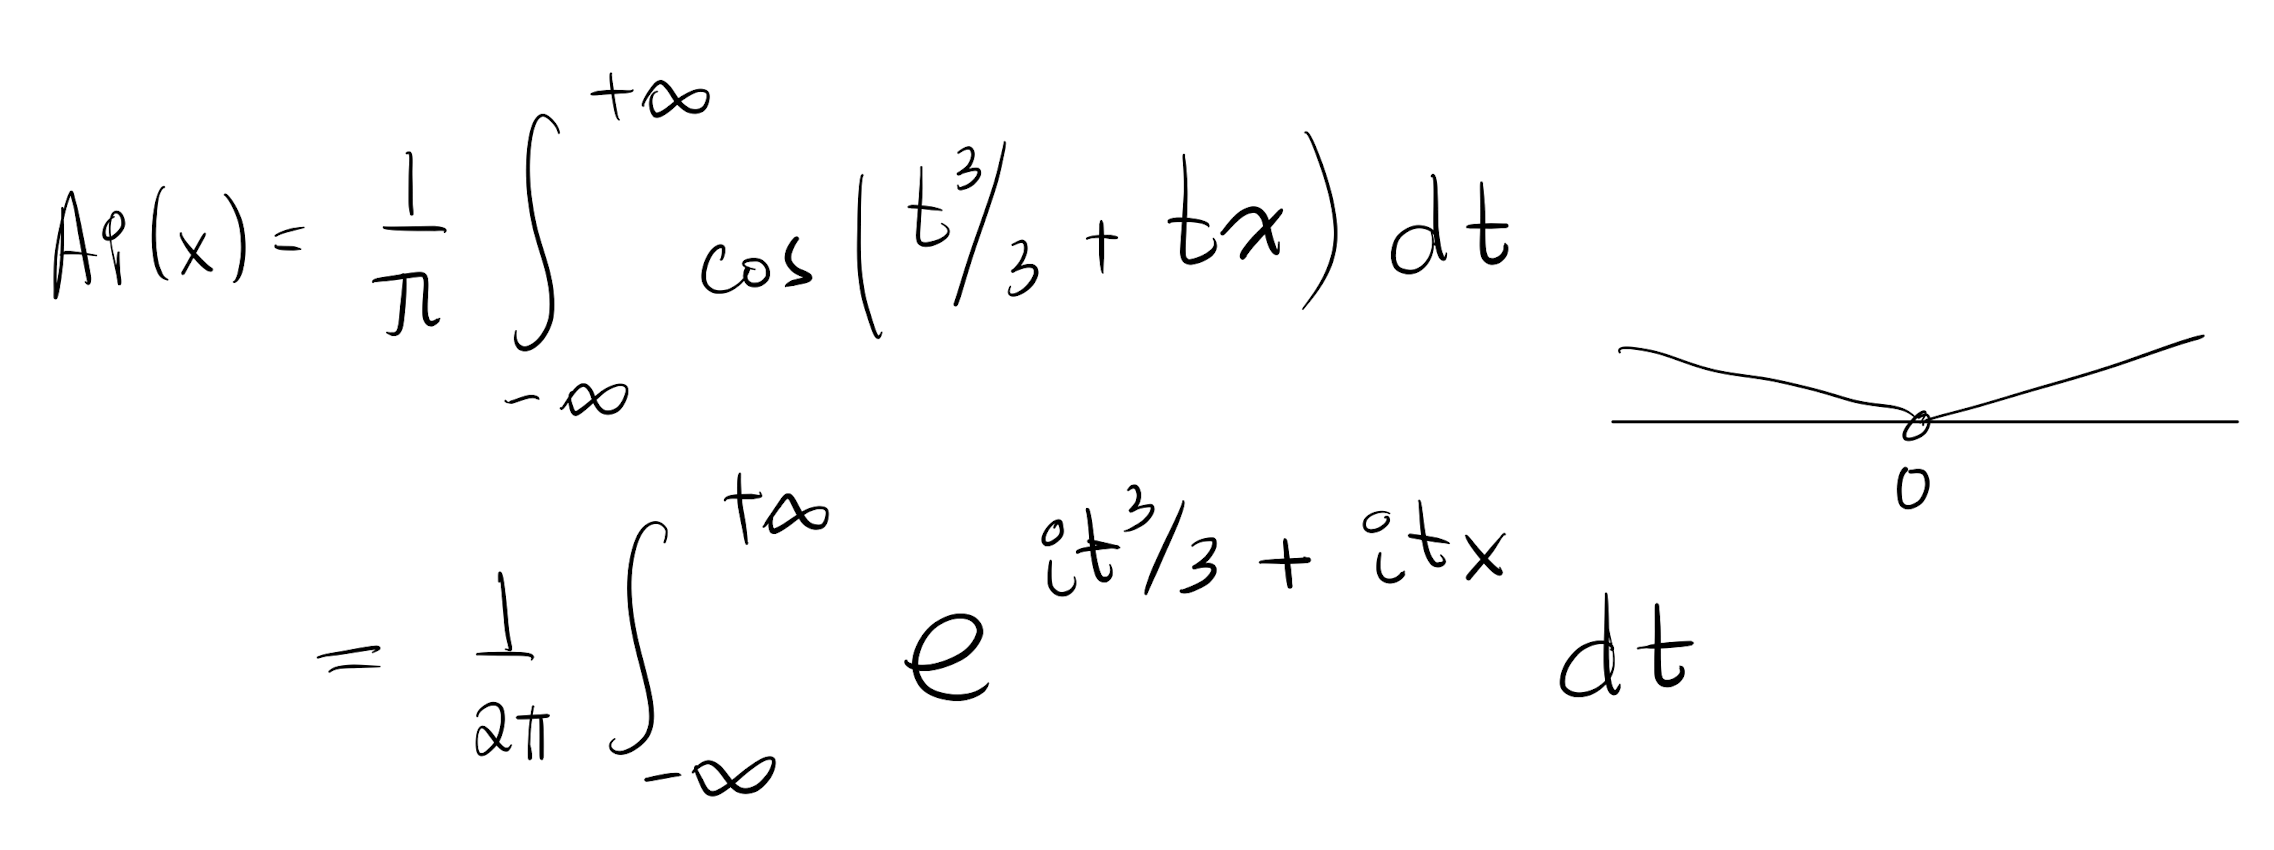 Ai(x) = 1/π ∫_{-∞}^{+∞} cos(t³/3 + tx) dt
0
= 1/2π ∫_{-∞}^{+∞} e^{it³/3 + itx} dt